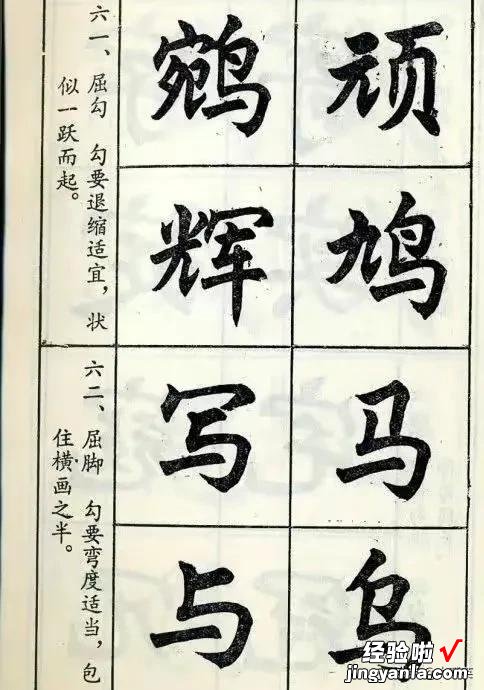 顽鸠马乌
鹓辉写与
六一、屈勾 勾要退缩适宜，状
似一跃而起。
六二、屈脚 勾要弯度适当，包
住横画之半。
经验啦√
jingyanla.com